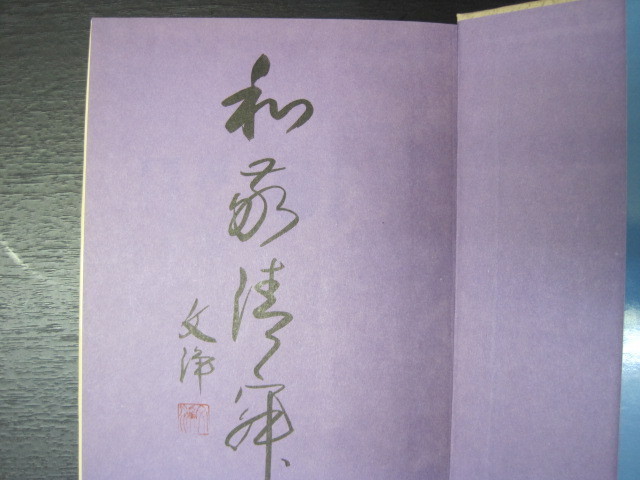 和敬清寂
文浄